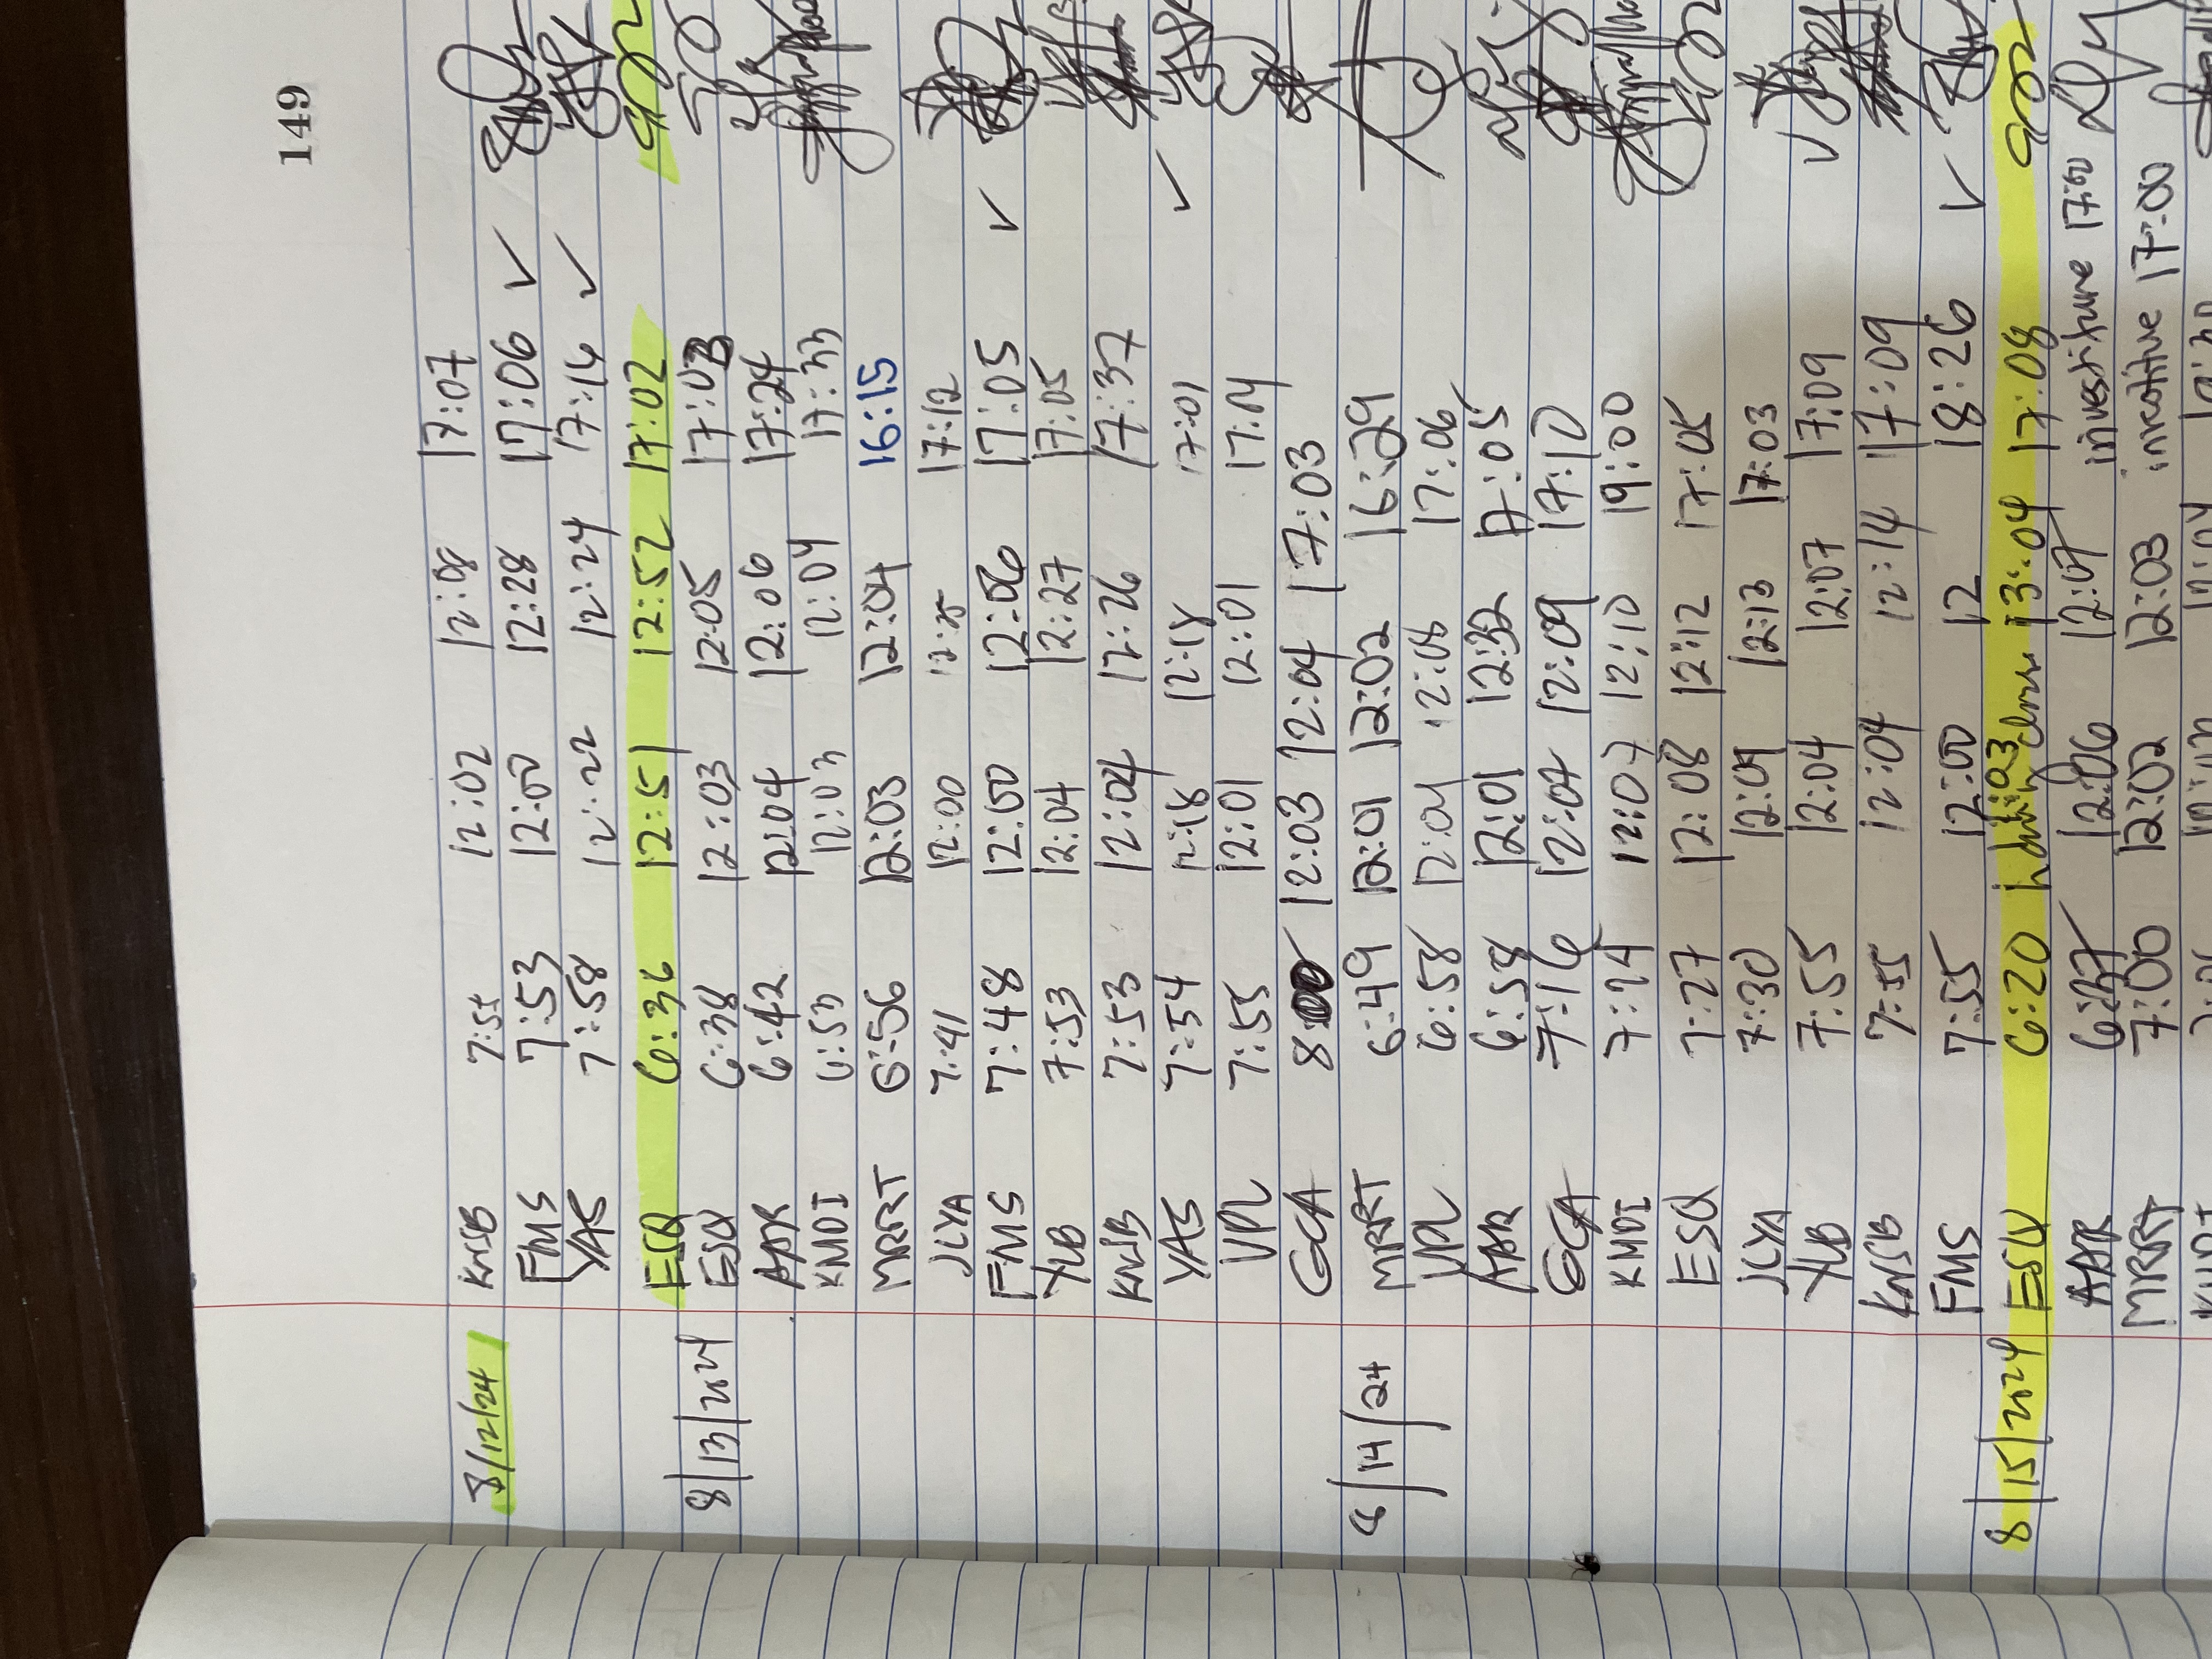 149
8/12/24 KNSB 7:55 12:02 12:08 17:07
FMS 7:53 12:00 12:28 17:06 ✓
YAS 7:58 12:22 12:24 17:16 ✓
ESQ 6:36 12:51 12:52 17:02
8/13/2024 ESQ 6:38 12:03 12:05 17:03
APR 6:42 12:04 12:06 17:24
KMDI 6:53 12:03 12:04 17:33
MRRT 6:56 12:03 12:04 16:15
JLYA 7:41 12:00 17:12
FMS 7:48 12:00 12:06 17:05 ✓
YLB 7:53 12:04 12:27 17:05
KNSB 7:53 12:04 12:26 17:37
YAS 7:54 12:18 12:18 17:01 ✓
VPL 7:55 12:01 12:01 17:04
GCA 8:00 12:03 12:04 17:03
8/14/24 MRRT 6:49 12:01 12:02 16:29
VPL 6:58 12:04 12:08 17:06
APR 6:58 12:01 12:32 17:05
GCA 7:16 12:04 12:09 17:10
KMDI 7:24 12:07 12:10 19:00
ESQ 7:27 12:08 12:12 17:05
JLYA 7:30 12:09 12:13 17:03
YLB 7:55 12:04 12:07 17:09 ✓
KNSB 7:55 12:04 12:14 17:09
FMS 7:55 12:00 12 18:26 ✓
8/15/2024 ESQ 6:20 13:04 17:08
APR 12:06 12:07 investiture 17:00
MRRT 7:00 12:02 12:03 17:00